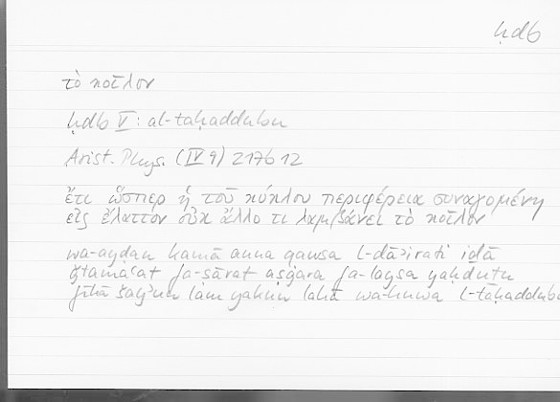 ḥdb
τὸ κοῖλον
ḥdb V: al-taḥaddubu
Arist. Phys. (IV 9) 217b12
ἔτι ὥσπερ ἡ τοῦ κύκλου περιφέρεια συναγομένη
εἰς ἔλαττον οὐκ ἄλλο τι λαμβάνει τὸ κοῖλον
wa-ayḍan kamā anna qawsa l-dāʾirati iḏā
ǧtamaʿat fa-ṣārat aṣġara fa-laysa yaḥduṯu
fīhā šayʾun lam yakun lahā wa-huwa l-taḥaddubu